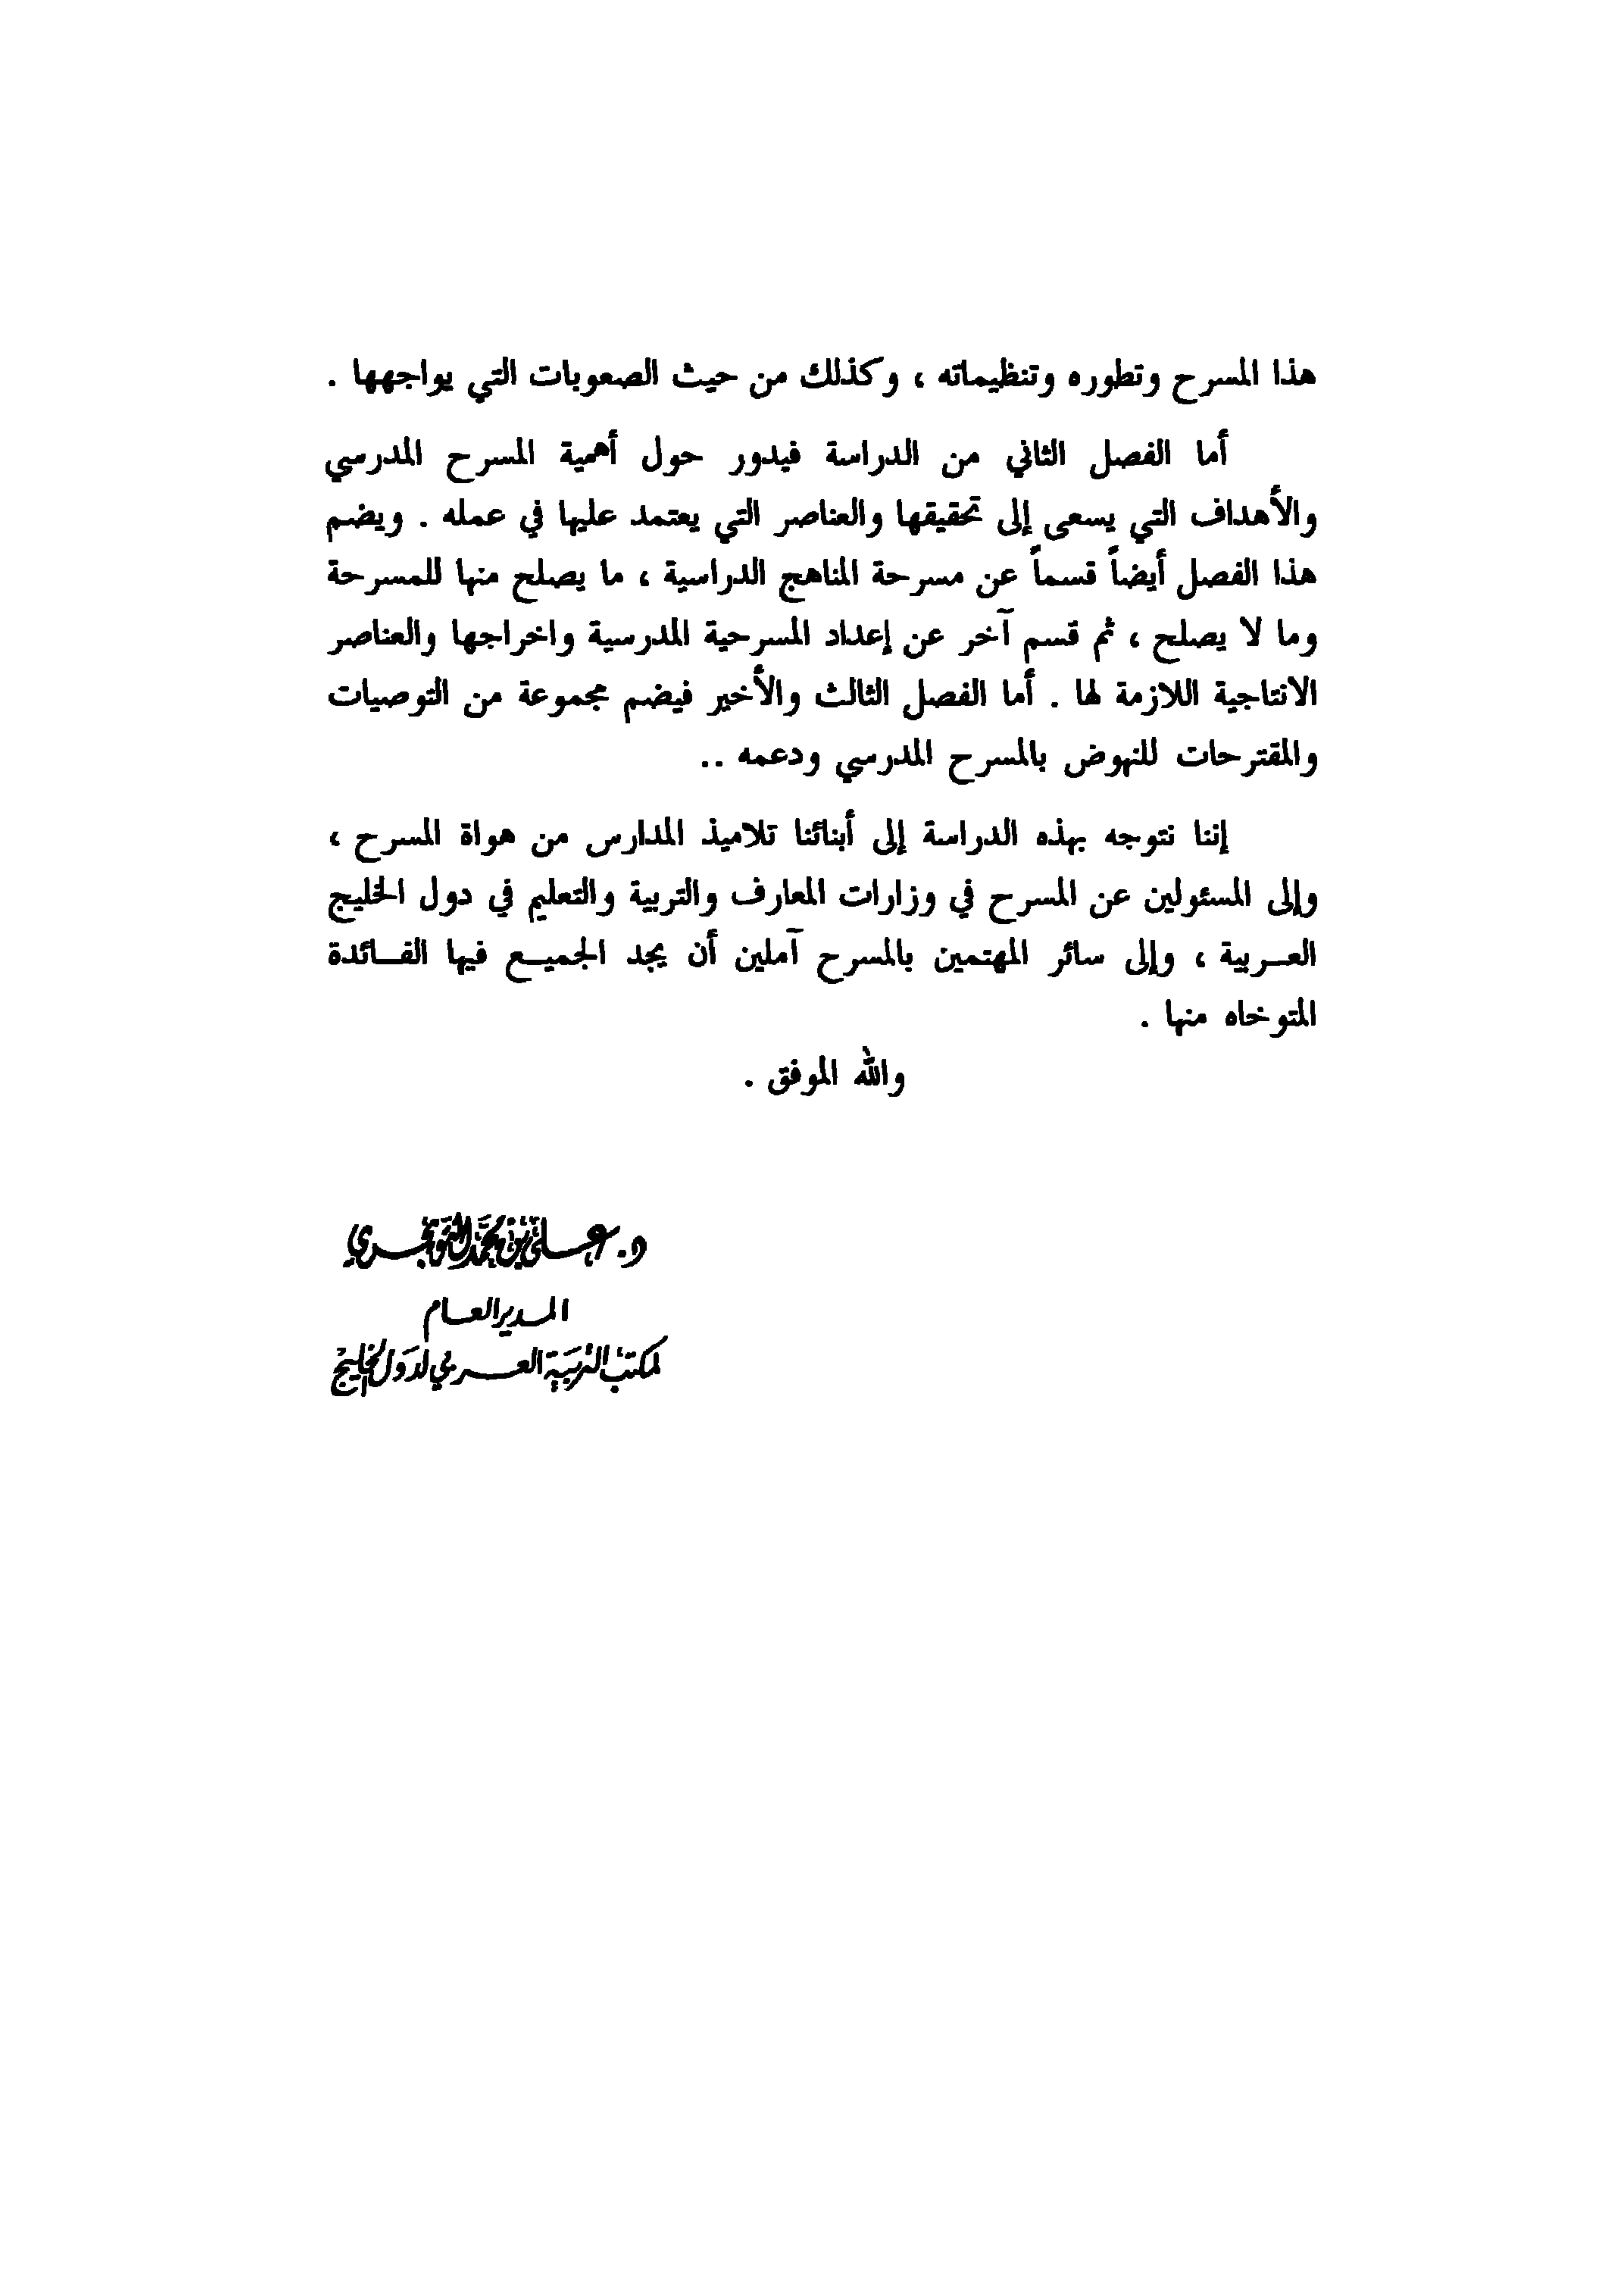 هذا المسرح وتطوره وتنظيماته ، وكذلك من حيث الصعوبات التي يواجهها .
أما الفصل الثاني من الدراسة فيدور حول أهمية المسرح المدرسي
والأهداف التي يسعى إلى تحقيقها والعناصر التي يعتمد عليها في عمله . ويضم
هذا الفصل أيضاً قسماً عن مسرحة المناهج الدراسية ، ما يصلح منها للمسرحة
وما لا يصلح ، ثم قسم آخر عن إعداد المسرحية المدرسية واخراجها والعناصر
الانتاجية اللازمة لها . أما الفصل الثالث والأخير فيضم مجموعة من التوصيات
والمقترحات للنهوض بالمسرح المدرسي ودعمه ..
إننا نتوجه بهذه الدراسة إلى أبنائنا تلاميذ المدارس من هواة المسرح ،
وإلى المسئولين عن المسرح في وزارات المعارف والتربية والتعليم في دول الخليج
العـربية ، وإلى سائر المهتمين بالمسرح آملين أن يجد الجميـع فيها الفـائدة
المتوخاه منها .
والله الموفق .
د. عـلي بن محمد التويجـري
المـدير العـام
لمكتب التربية العـربي لدول الخليج